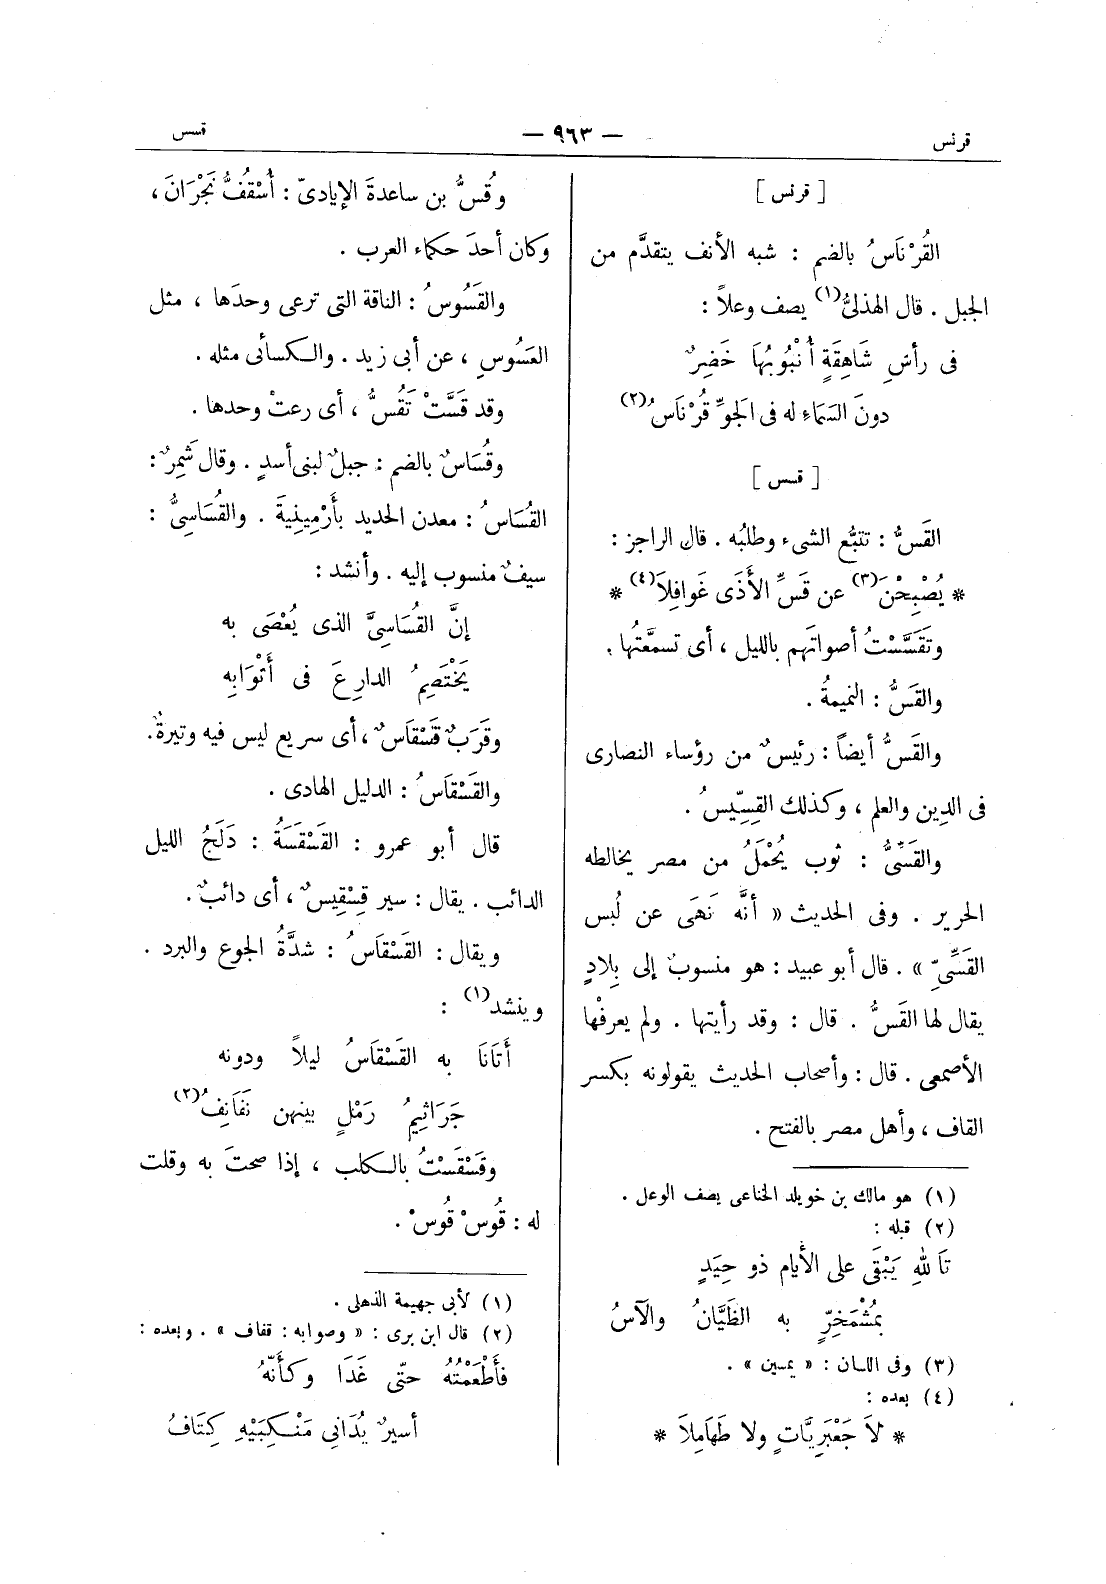 قرنس
— ٩٦٣ —
قسس
[ قرنس ]
القُرْنَاسُ بالضم : شبه الأنف يتقدَّم من
الجبل . قال الهذلىُّ(١) يصف وعلاً :
فى رأسِ شَاهِقَةٍ أُنْبُوبُهَا خَضِرٌ
دونَ السَمَاءِ له فى الجَوِّ قُرْنَاسُ(٢)
[ قسس ]
القَسُّ : تتبُّع الشىء وطلبُه . قال الراجز :
* يُصْبِحْنَ(٣) عن قَسِّ الأَذَى غَوافِلاَ(٤) *
وتَقَسَّسْتُ أصواتَهم بالليل ، أى تسمَّعتُها .
والقَسُّ : النميمةُ .
والقَسُّ أيضاً : رئيسٌ من رؤساء النصارى
فى الدِين والعلم ، وكذلك القِسِّيسُ .
والقَسِّىُّ : ثوب يُحْمَلُ من مصر يخالطه
الحرير . وفى الحديث « أنَّه نَهَى عن لُبس
القَسِّىِّ » . قال أبو عبيد : هو منسوبٌ إلى بِلادٍ
يقال لها القَسُّ . قال : وقد رأيتها . ولم يعرفْها
الأصمعى . قال : وأصحاب الحديث يقولونه بكسر
القاف ، وأهل مصر بالفتح .
(١) هو مالك بن خويلد الخناعى يصف الوعل .
(٢) قبله :
تَاللهِ يَبْقَى على الأيام ذو حِيَدٍ
بِمُشْمَخِرٍّ به الظَيَّانُ والآسُ
(٣) وفى اللسان : « يمسين » .
(٤) بعده :
* لاَ جَعْبَرِيَّاتٍ ولا طَهَامِلاَ *
وقُسُّ بن ساعدةَ الإيادىّ : أُسْقُفُّ نَجْرَانَ ،
وكان أحدَ حكماء العرب .
والقَسُوسُ : الناقة التى ترعى وحدَها ، مثل
العَسُوسِ ، عن أبى زيد . والكسائى مثله .
وقد قَسَّتْ تَقُسُّ ، أى رعتْ وحدها .
وقُسَاسٌ بالضم : جبلٌ لبنى أسدٍ . وقال شَمِرٌ :
القُسَاسُ : معدن الحديد بأَرْمِينِيَةَ . والقُسَاسِىُّ :
سيفٌ منسوب إليه . وأنشد :
إنَّ القُسَاسِىَّ الذى يُعْصَى به
يَخْتَصِمُ الدارِعَ فى أَثْوَابِهِ
وقَرَبٌ قَسْقَاسٌ ، أى سريع ليس فيه وتيرةٌ .
والقَسْقَاسُ : الدليل الهادى .
قال أبو عمرو : القَسْقَسَةُ : دَلَجُ الليل
الدائب . يقال : سير قِسْقِيسٌ ، أى دائبٌ .
ويقال : القَسْقَاسُ : شدَّةُ الجوع والبرد .
وينشد(١) :
أَتَانَا به القَسْقَاسُ ليلاً ودونه
جَرَاثِيمُ رَمْلٍ بينهن نَفَانِفُ(٢)
وقَسْقَسْتُ بالكلب ، إذا صحتَ به وقلت
له : قُوسْ قُوسْ .
(١) لأبى جهيمة الذهلى .
(٢) قال ابن برى : « وصوابه : قفاف » . وبعده :
فأَطْعَمْتُهُ حتّى غَدَا وكأَنّهُ
أسيرٌ يُدَانِى مَنْكِبَيْهِ كِتَافُ